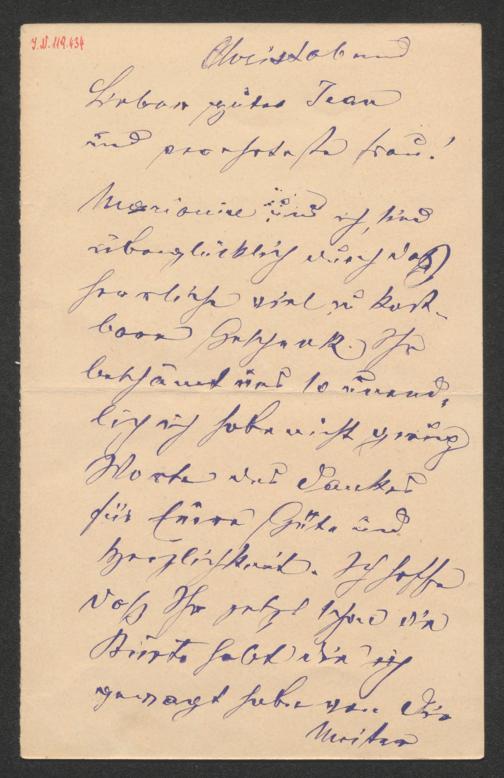 I.N. 119.434
Christabend
Lieber guter Jean
und verehrteste Frau!
Marianne und ich sind
überglücklich durch das
herrliche viel zu kost-
bare Geschenk. Ihr
beschämt uns so unend-
lich ich habe nicht genug
Worte des Dankes
für Eure Güte und
Herzlichkeit. Ich hoffe
daß Ihr jetzt schon die
Büste habt die ich
gewagt habe von Dir